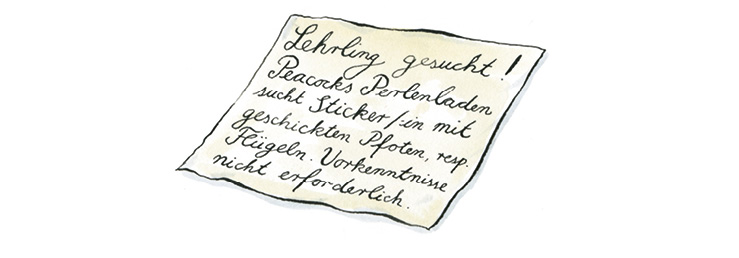 Lehrling gesucht!
Peacocks Perlenladen
sucht Sticker/in mit
geschickten Pfoten, resp.
Flügeln. Vorkenntnisse
nicht erforderlich.